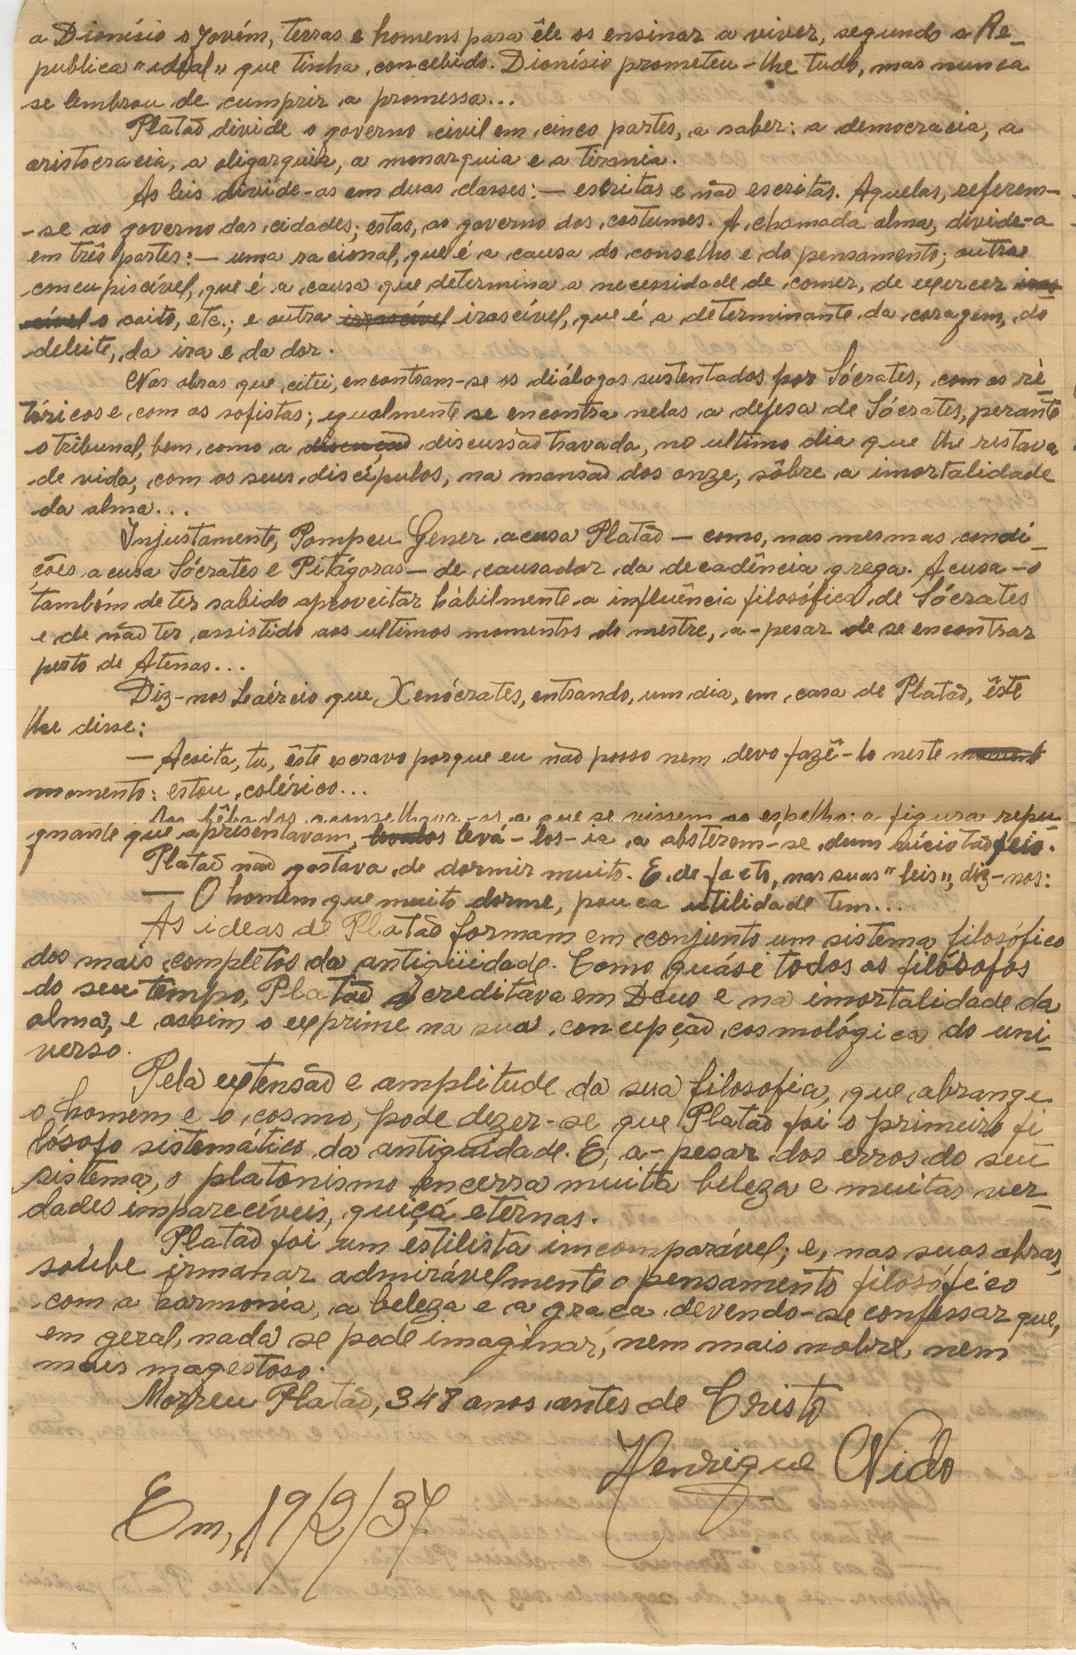 a Dionísio o Jovém, terras e homens para êle os ensinar a viver, segundo a Re-
publica "ideal" que tinha concebido. Dionísio prometeu-lhe tudo, mas nunca
se lembrou de cumprir a promessa...
Platão divide o governo civil em cinco partes, a saber: a democracia, a
aristocracia, a oligarquia, a monarquia e a tirania.
As leis divide-as em duas classes: — escritas e não escritas. Aquelas, referem-
-se ao governo das cidades; estas, ao governo dos costumes. A chamada alma, divide-a
em três partes: — uma racional, que é a causa do conselho e do pensamento; outra
concupiscível, que é a causa que determina a necessidade de comer, de exercer iras-
cível o coito, etc.; e outra irrascível irascível, que é a determinante da coragem, do
deleite, da ira e da dor.
Nas obras que citei, encontram-se os diálogos sustentados por Sócrates, com os re-
tóricos e com os sofistas; igualmente se encontra nelas a defesa de Sócrates, perante
o tribunal, bem como a discussão travada, no ultimo dia que lhe restava
de vida, com os seus discípulos, na mansão dos onze, sôbre a imortalidade
da alma...
Injustamente, Pompeu Gener acusa Platão — como, nas mesmas condi-
ções acusa Sócrates e Pitágoras — de causador da decadência grega. Acusa-o
também de ter sabido aproveitar hábilmente a influência filosófica de Sócrates
e de não ter assistido aos ultimos momentos do mestre, a-pesar de se encontrar
perto de Atenas...
Diz-nos Laércio que, Xenócrates, entrando, um dia, em casa de Platão, êste
lhe disse:
— Açoita, tu, êste escravo porque eu não posso nem devo fazê-lo neste
momento: estou colérico...
Aos bêbados aconselhava-os a que se vissem ao espelho: a figura repu-
gnante que apresentavam, levá-los-ia a absterem-se dum vício tão feio.
Platão não gostava de dormir muito. E, de-facto, nas suas "leis", diz-nos:
— O homem que muito dorme, pouca utilidade tem...
As ideas de Platão formam em conjunto um sistema filosófico
dos mais completos da antigüidade. Como quási todos os filósofos
do seu tempo, Platão acreditava em Deus e na imortalidade da
alma, e assim o exprime na sua concepção cosmológica do uni-
verso.
Pela extensão e amplitude da sua filosofia, que abrange
o homem e o cosmo, pode dezer-se que Platão foi o primeiro fi
lósofo sistemático da antigüidade. E, a-pesar dos erros do seu
sistema, o platonismo encerra muita beleza e muitas ver-
dades imparecíveis, quiçá eternas.
Platão foi um estilista imcomparável; e, nas suas obras,
soube irmanar admirávelmente o pensamento filosófico
com a harmonia, a beleza e a graça devendo-se confessar que,
em geral, nada se pode imaginar, nem mais nobre, nem
mais magestoso.
Morreu Platão, 348 anos antes de Cristo
Henrique Nido
Em, 19/2/37